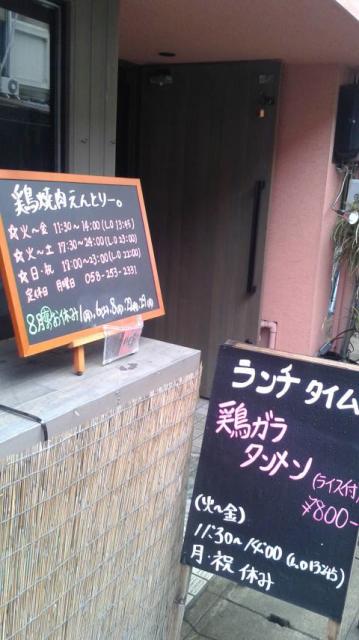 鶏焼肉えんとりー。
☆火〜金 11:30〜14:00(L.O 13:45)
☆火〜土 17:30〜24:00(L.O 23:00)
☆日・祝 17:00〜23:00(L.O 22:00)
定休日 月曜日 058-253-2331
8月のお休み
ランチタイム
鶏ガラ
タンメン
(ライス付)
¥800-
(火〜金)
11:30〜14:00 (L.O 13:45)
月・祝 休み